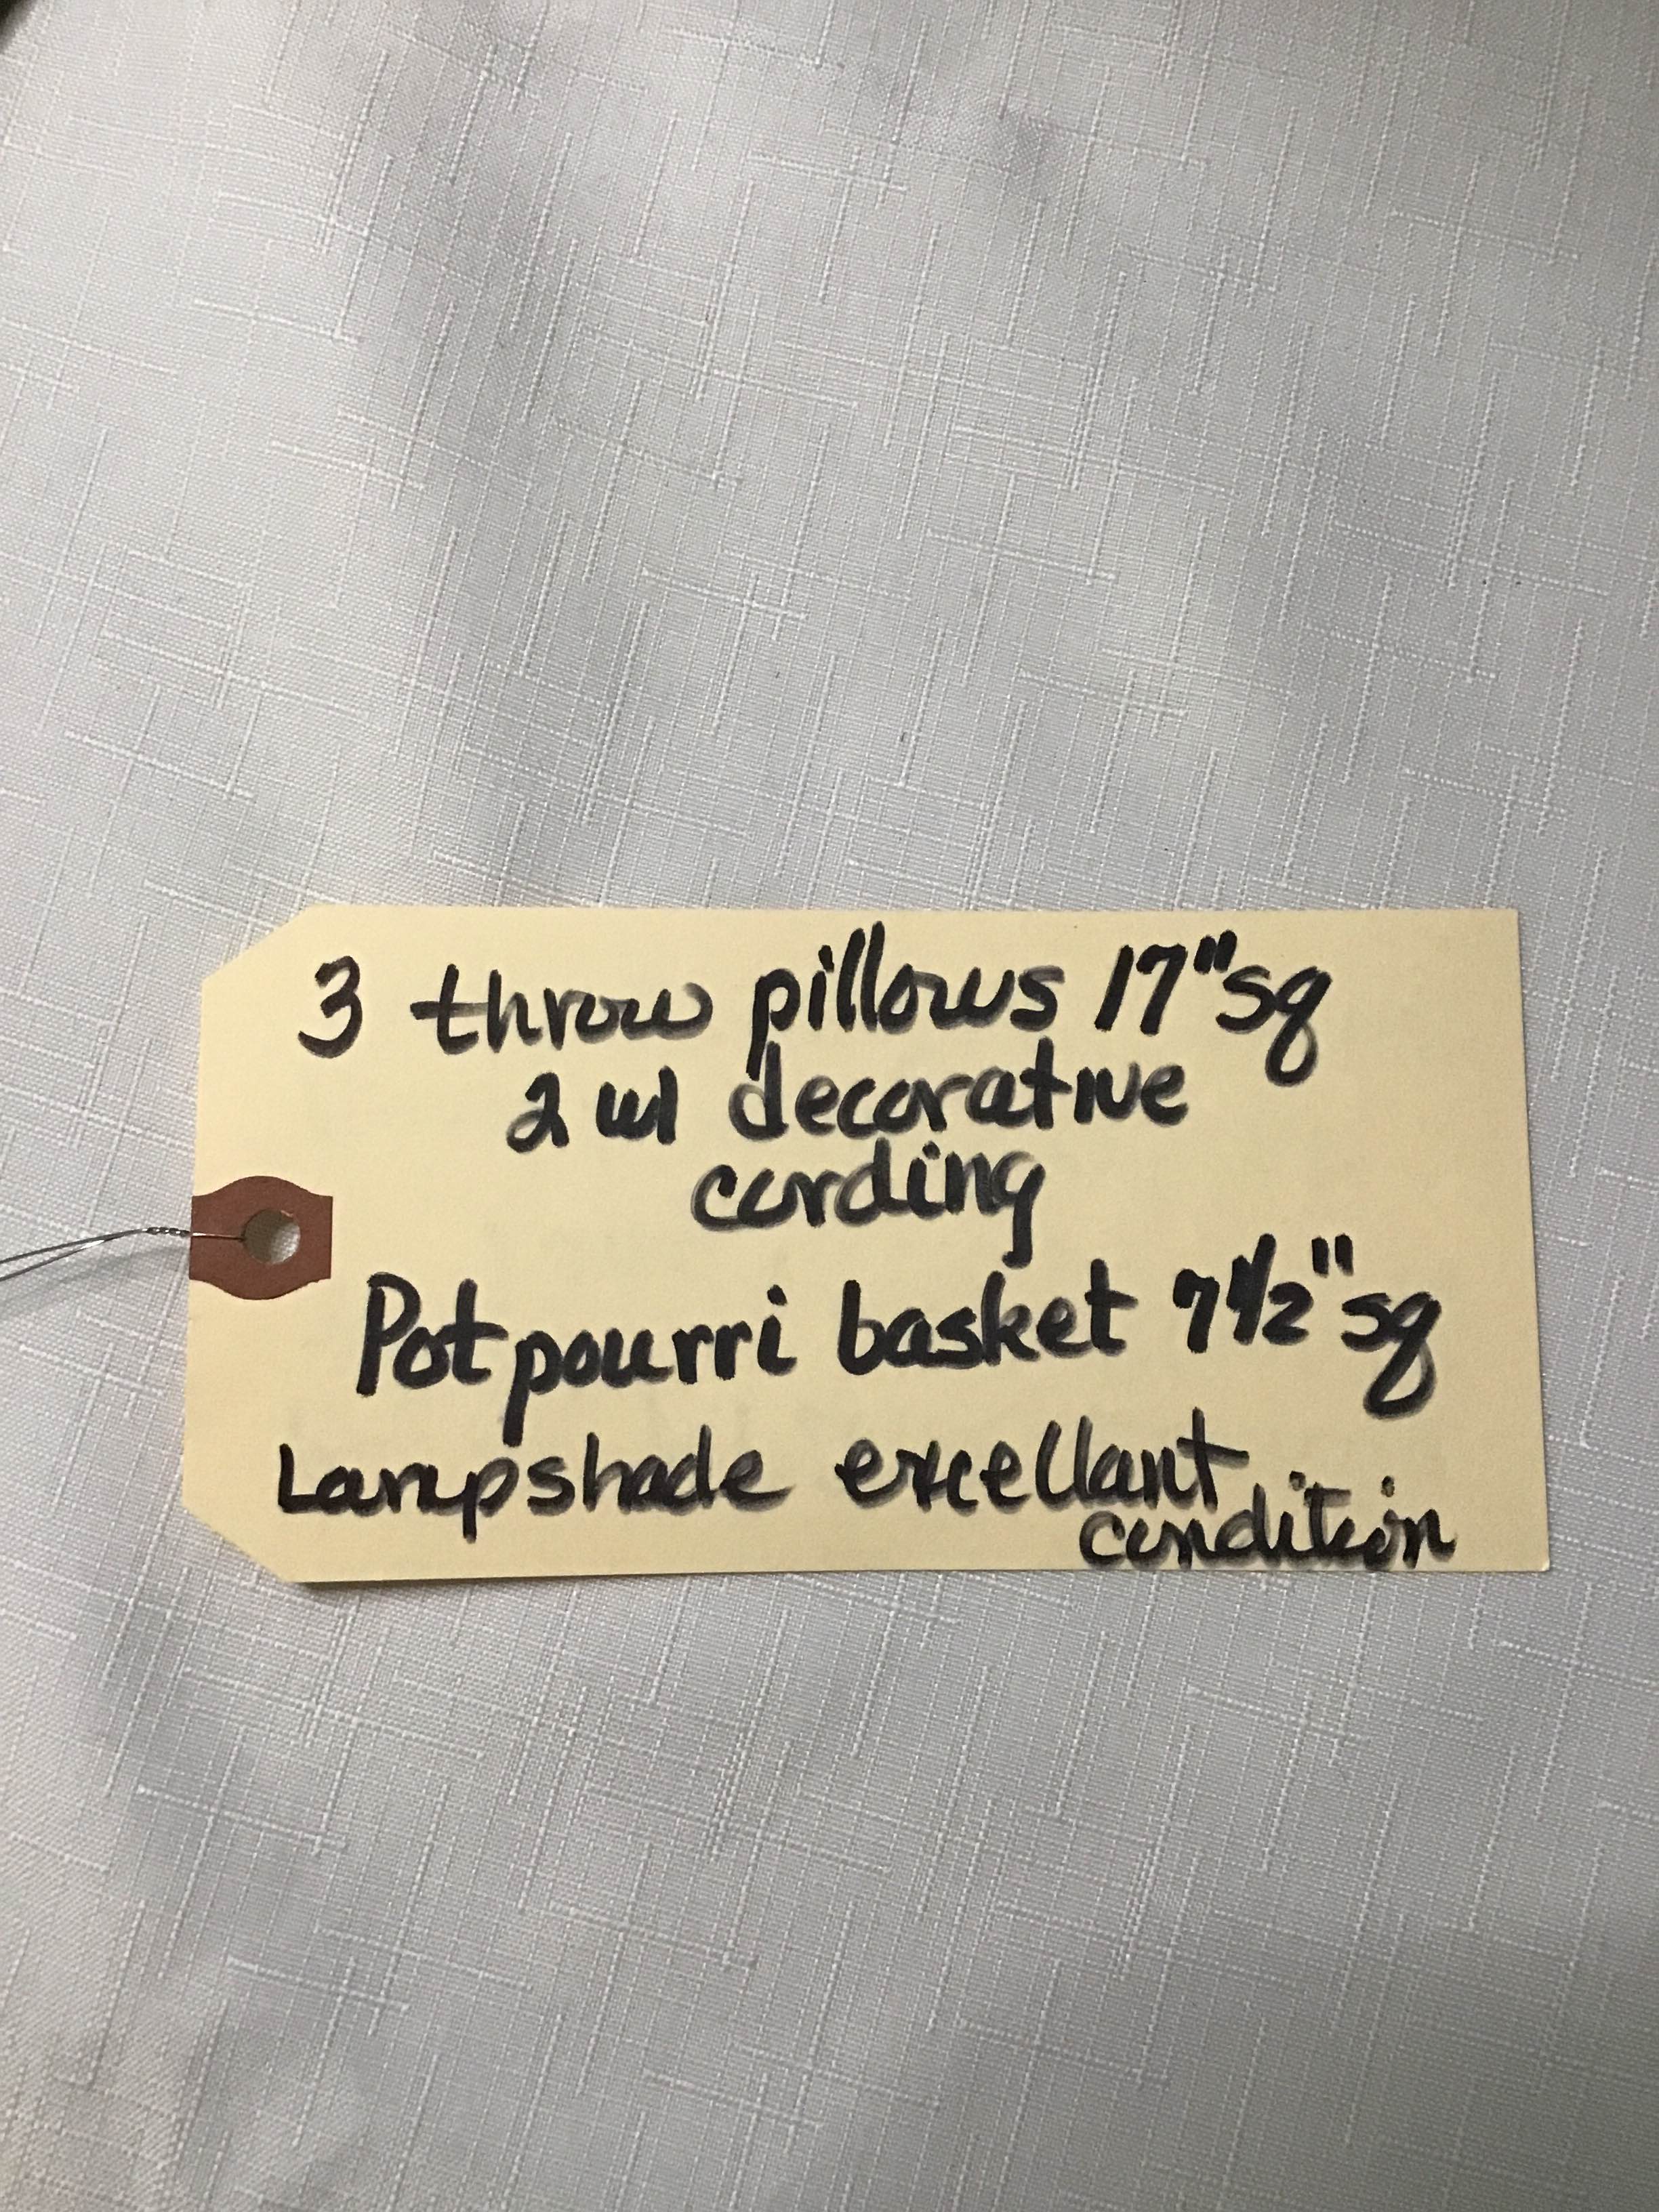 3 throw pillows 17" sq
2 w/ decorative
cording
Potpourri basket 7 1/2" sq
Lampshade excellant
condition